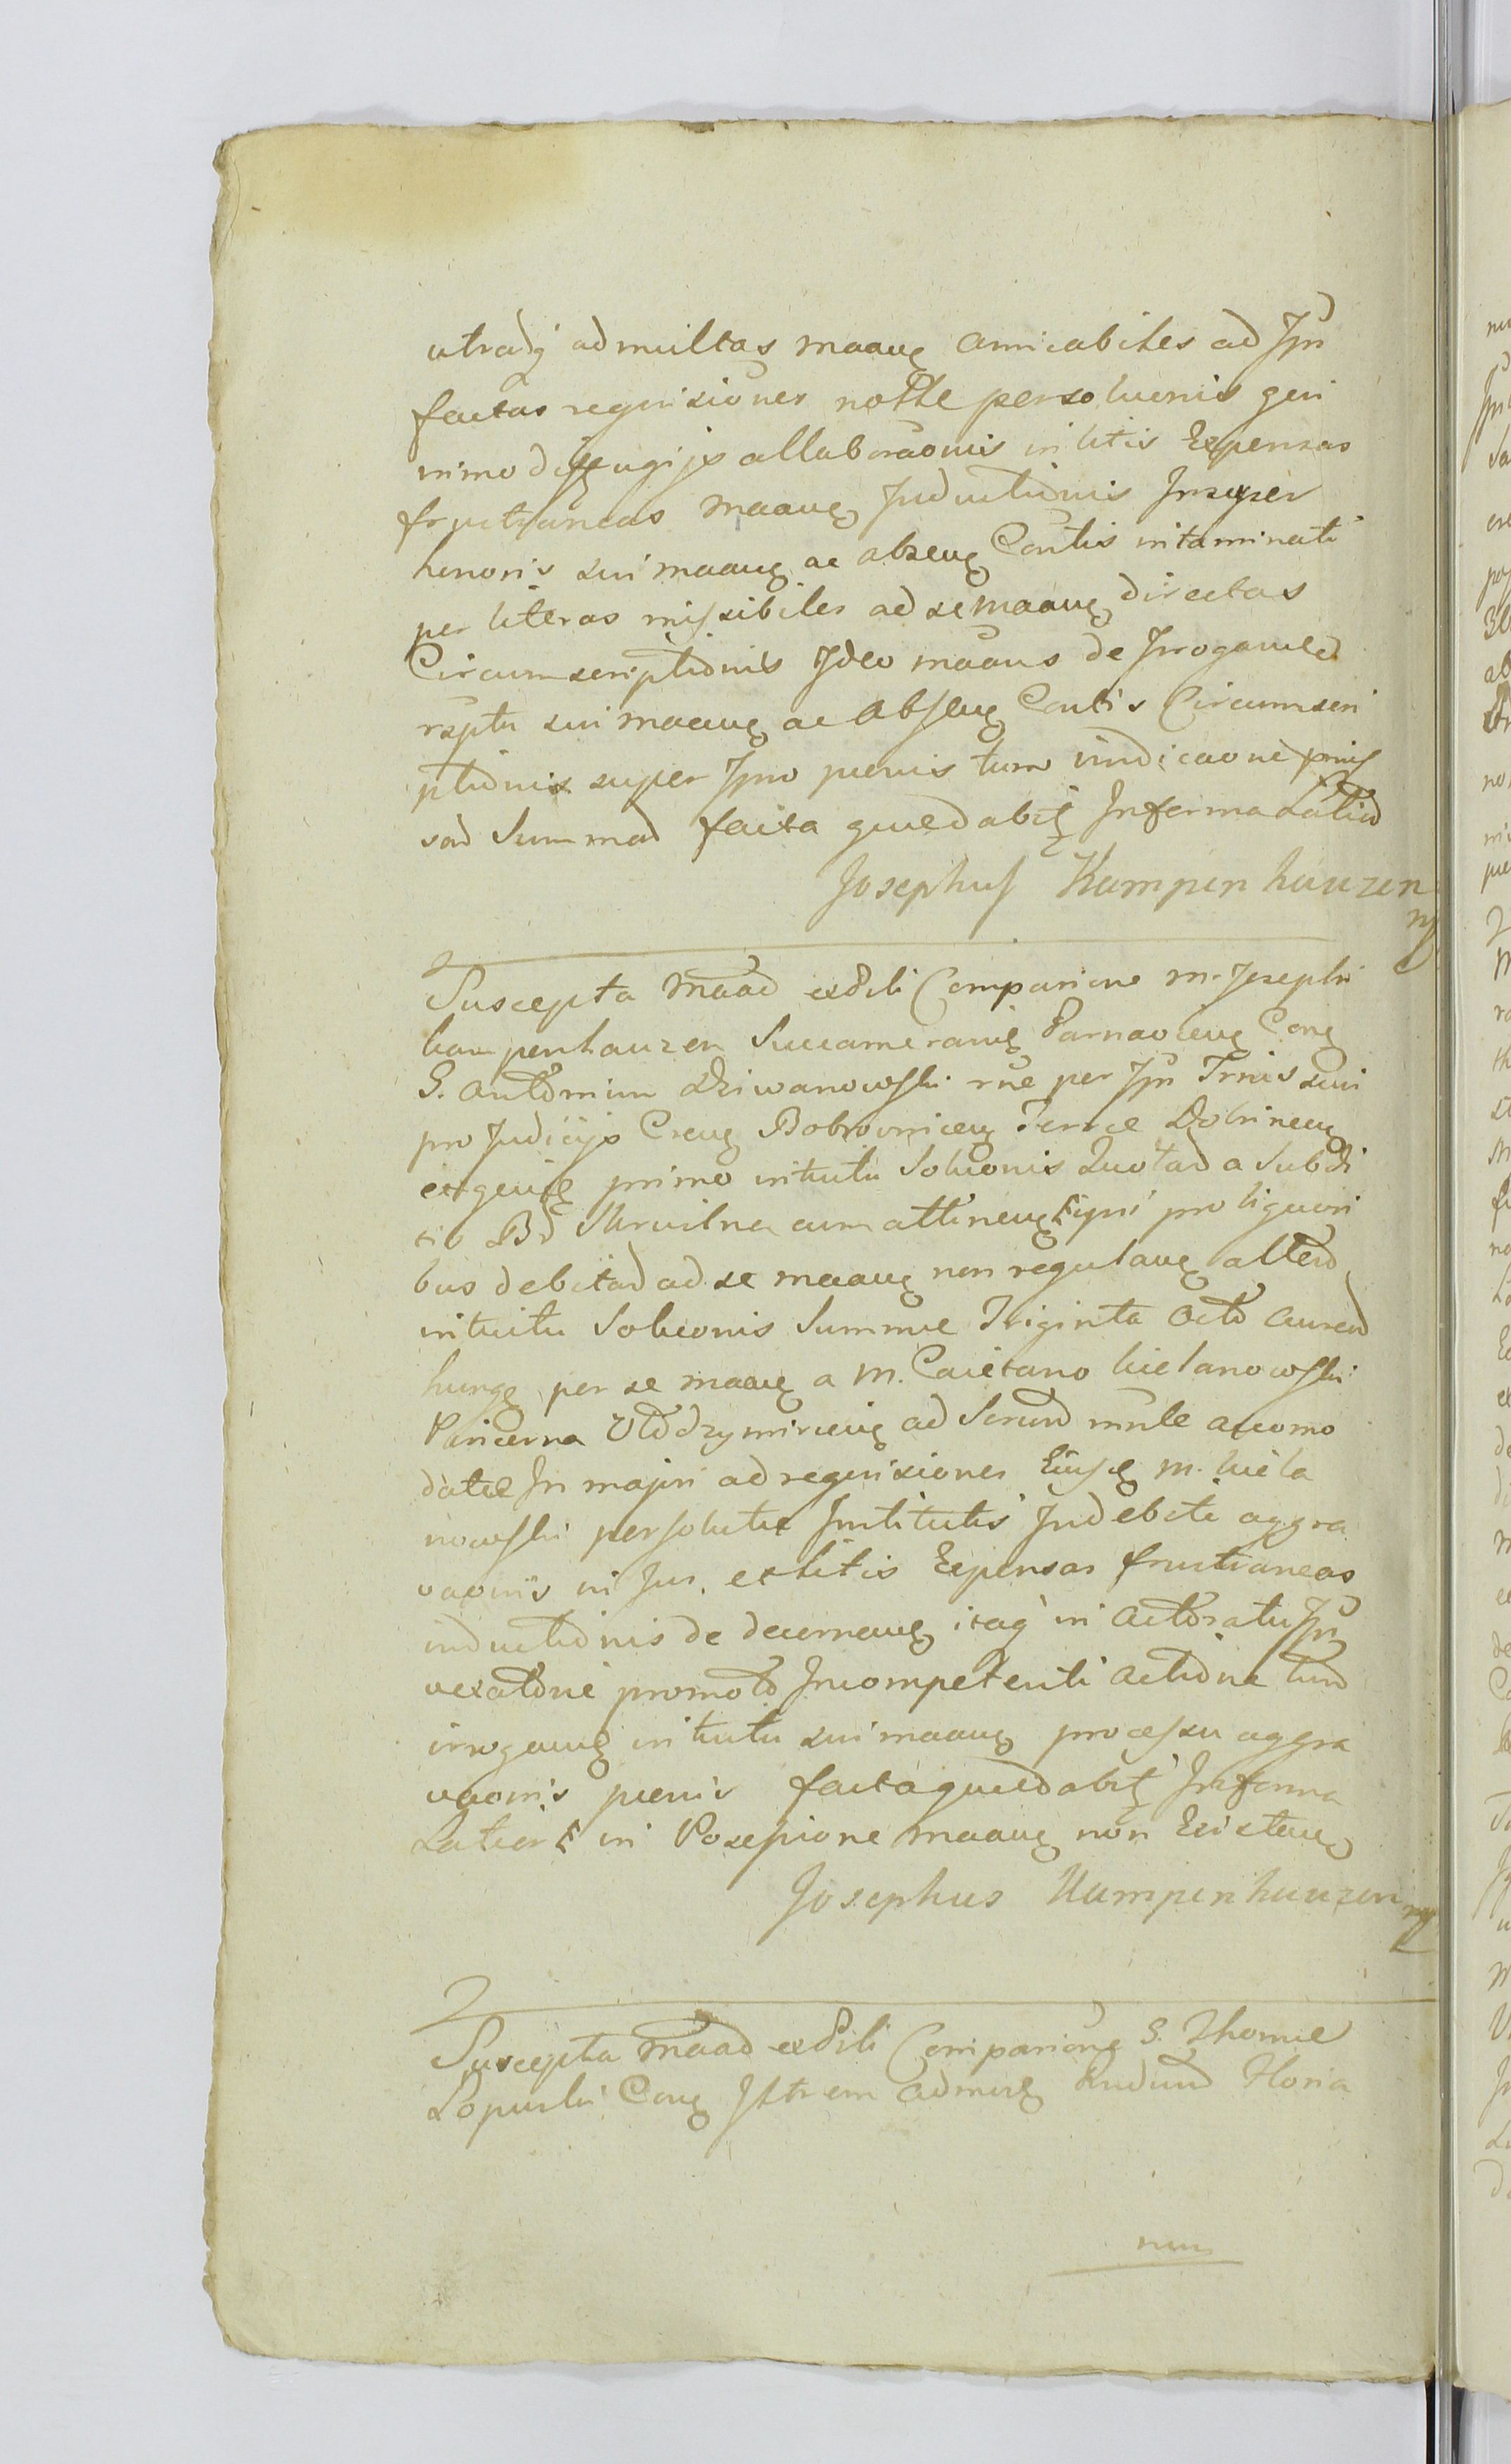 utradq admultas maang amicabiles ad Jpn
factas requisiones nolle persoluenis qui
nimo diffugijs allaboraonis in litis Expensas
frustraneas maang Inductionis Insuper
honoris sui maang ac abseng Contis intaminati
per literas missibiles ad se maang directas
Circumscriptionis Ideo maans de Jrrogamed
rsptu sui maang ac Absseng Contis Circumscri
ptionis super Jpno poenis tum vindicaone
Summad facta quedabit Informa Latid
Josephus Kampenhauzen
mp
Suscepta maad exdili Comparione M. Josephi
kampenhauzen Succamerarig Parnavieng Cong
G. Antonium Dziwanowski rne per Jpn Trnis sui
pro Judicijs Creng Bobrovniceng Terrae Dobrineng
primo intuitu Soluonis Quotad a Subdi
tis Bd Skruilna cum attineng pro liquori
bus debitad ad se maang non regulang alterd
intuitu Soluonis Summae Triginta Octo aured
hung per se maang a M. Caietano kielanowski
Pincerna Vldzymirieng ad Serund mnle accomo
datae In majori ad requisiones Eiusd M. kiela
nowski persolutae Institutis Indebite aggra
vaonis in Jur. et litis Expensas frustraneas
inductionis de decernang itaq in Actoratu Jpn
vexatone promoto Jncompetenti Actione tund
irrogang intuitu sui maang processu aggra
vaonis poenis facta quedabit Informa
Lation in Possessione maang non Existeng
Josephus Kampenhauzen mp
Suscepta maad exdili Comparione G. Thomae
Lopuski Cong Jttrem Admin Rudund Floria
num